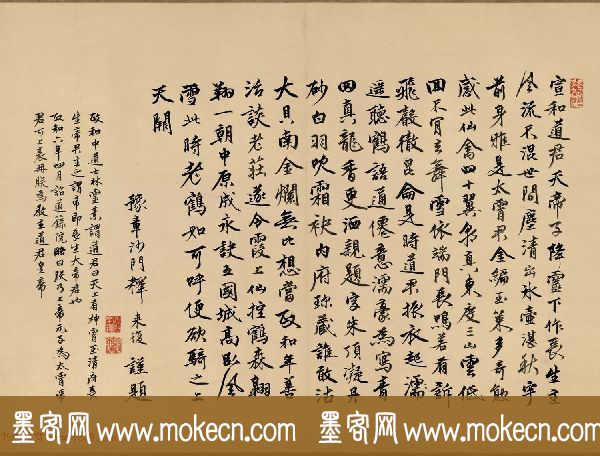 宣和道君天帝子陰靈下作長生主
風流不混世間塵清出冰壺湛秋宇
前身雅是太霄君金編玉策多奇勳
感此仙禽四十翼朝真東度三山雲低
回不肯去舞雪依端門長鳴若有訴
飛聲徹崑崙是時道君振衣起
遙聽鶴語通僊意濡毫為寫青
田真龍香更灑親題字朱頂凝丹
砂白羽吹霜袂內府珍藏誰敢沽
大貝南金爛無比想當政和年善
活談老莊遂令霞上仙控鶴森翱
翔一朝中原成永訣五國城高臥風
雪此時老鶴如可呼便欲騎之上
天闕
豫章沙門釋來復謹題
政和中道士林靈素謂道君曰天上有神霄玉清府長
生帝君主之謂帝即長生大帝君也
政和六年四月詔道籙院略曰朕乃上帝元子為太霄帝
君可上表冊朕為教主道君皇帝
墨客网 www.mokecn.com 墨客网 www.mokecn.com